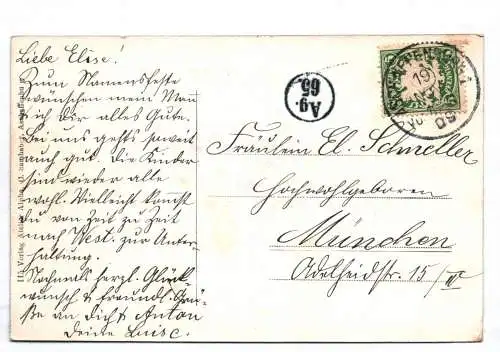 Liebe Elise!
Zum Namensfeste
wünschen mein Mann
u. ich Dir alles Gute.
Bei uns gehts soweit
auch gut. Die Kinder
sind wieder alle
wohl. Vielleicht kommst
Du von Zeit zu Zeit
nach West. zur Unter
haltung.
Nochmals herzl. Glück
wunsch & freundl. Grü
ße an Dich & Anton
Deine Luise.
Ag.
65.
19
09
Fräulein El. Schneller
Hochwohlgeboren
München
Adelheidstr. 15/IV
Verlag Atelier Alpha